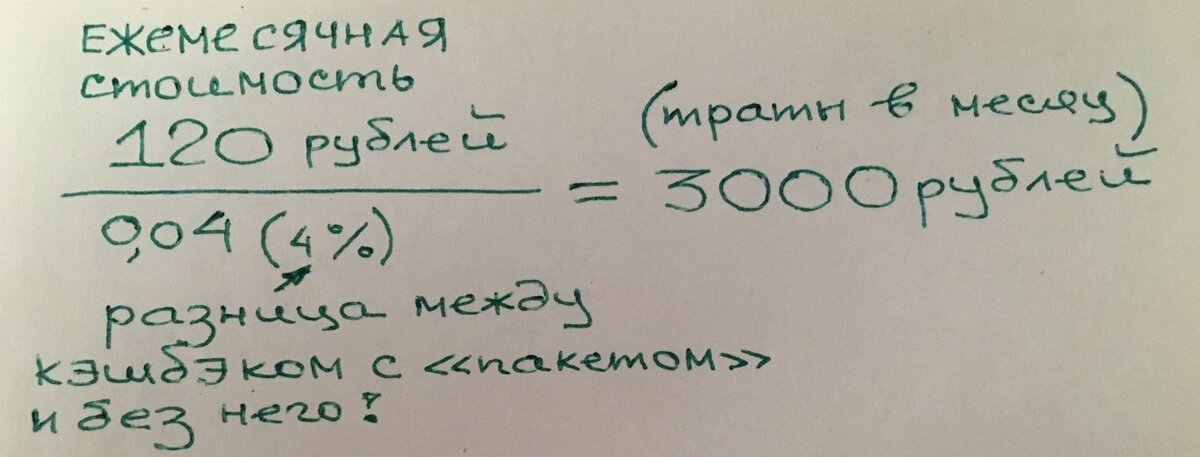 ЕЖЕМЕСЯЧНАЯ
стоимость
120 рублей
0,04 (4%)
= 3000 рублей
(траты в месяц)
разница между
кэшбэком с «пакетом»
и без него!